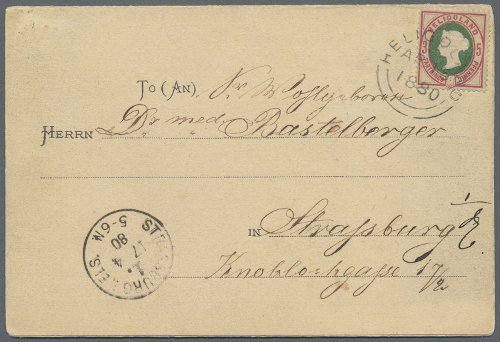 HELIGOLAND
HELIGO
AP
1880
TO (AN) Sr Wohlgeboren
HERRN Dr med. Bastelberger
IN Straſsburg i/E
Knoblochgasse 17/2
STRASSBURG i. ELS.
17
4
80
5-6N